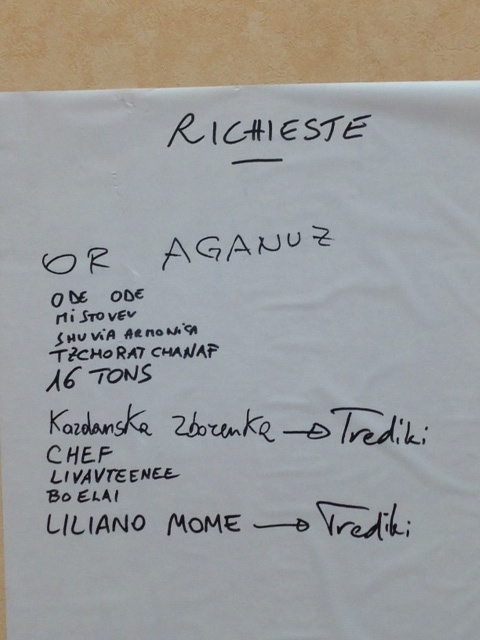 RICHIESTE
OR AGANUZ
ODE ODE
MISTOVEV
SHUVIA ARMONICA
TZCHORAT CHANAF
16 TONS
Kazdanska Zborenka → Trediki
CHEF
LIVAVTEENEE
BO ELAI
LILIANO MOME → Trediki